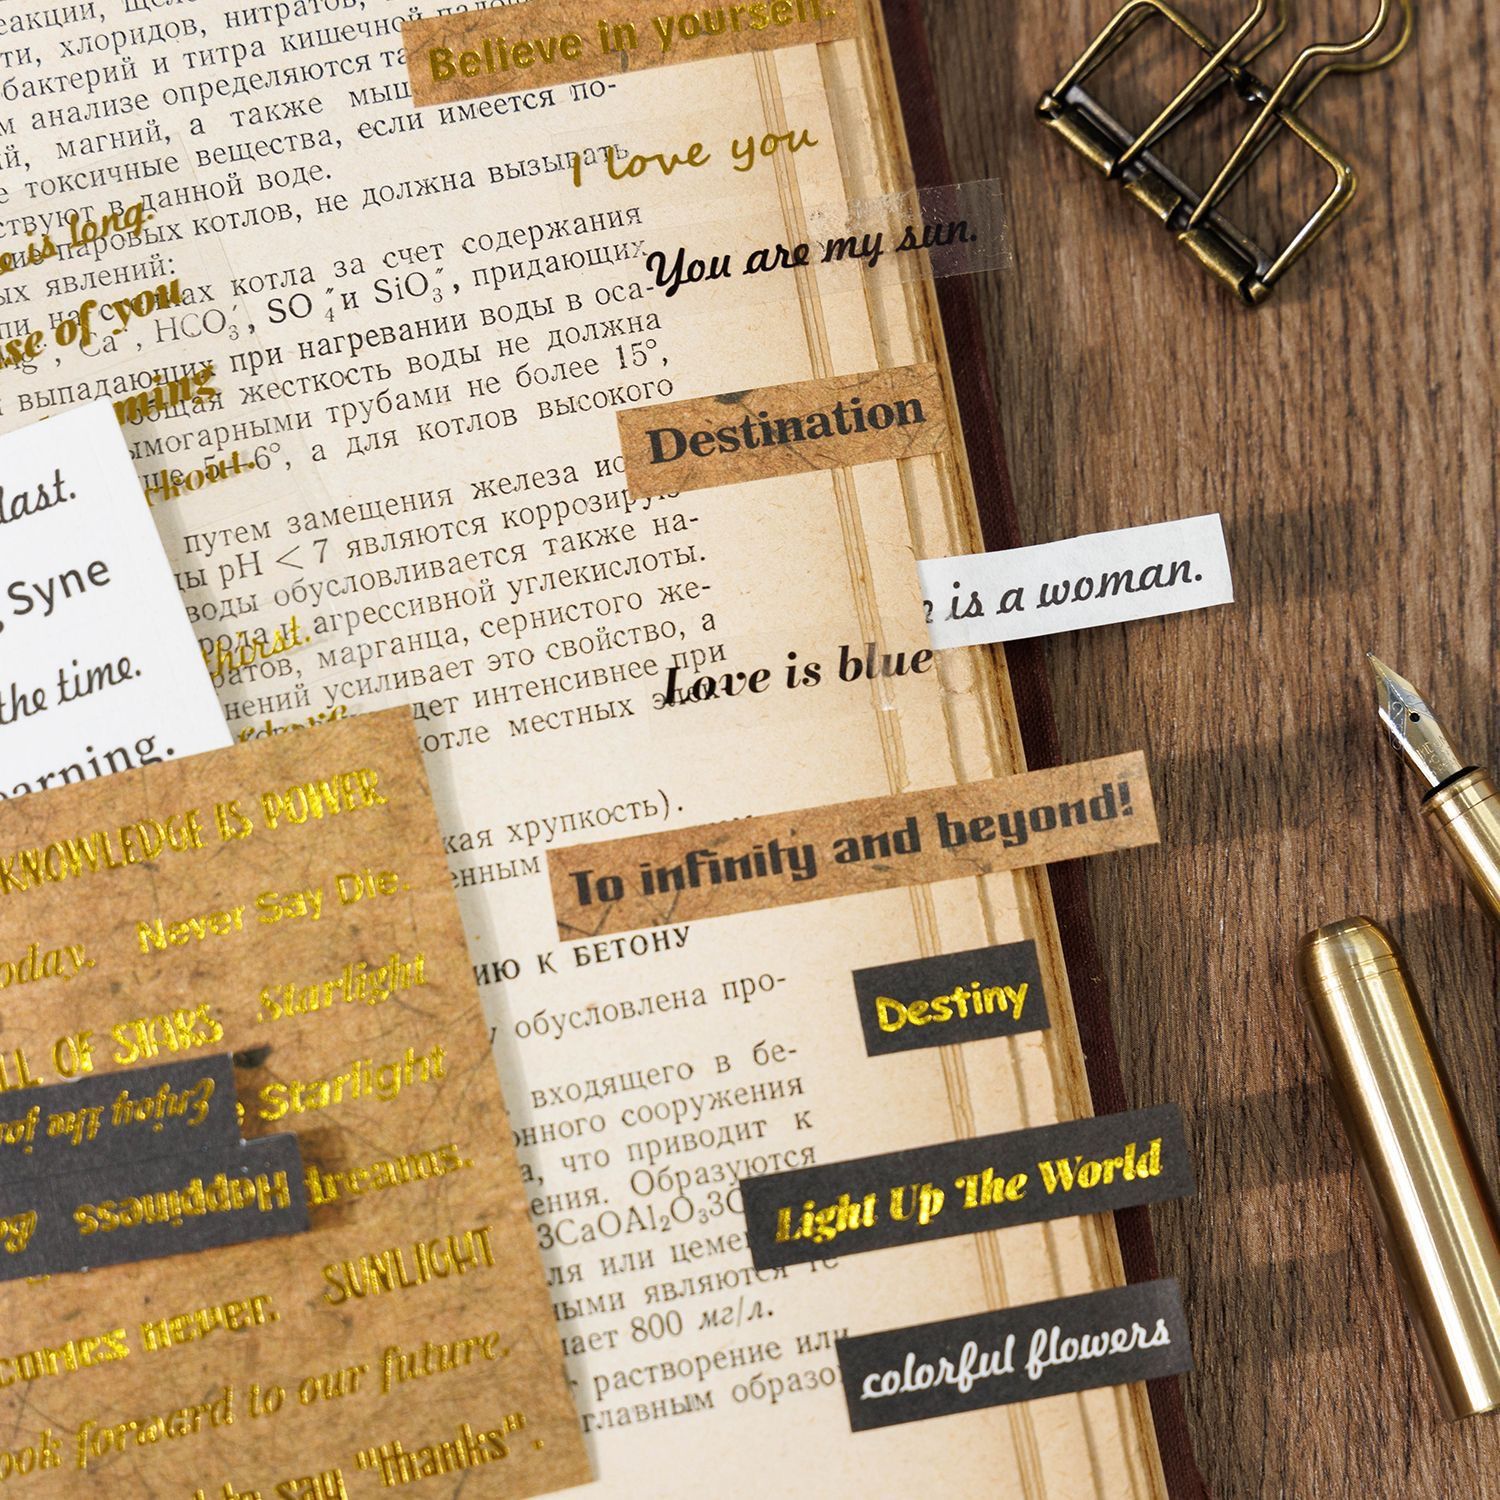 Believe in yourself.
хлоридов, нитратов,
бактерий и титра кишечной
анализе определяются
магний, а также
токсичные вещества, если имеется по-
в данной воде.
паровых котлов, не должна вызывать
явлений:
котла за счет содержания
HCO₃′, SO₄″ и SiO₃″, придающих
выпадающих при нагревании воды в оса-
общая жесткость воды не должна
трубами не более 15°,
5—6°, а для котлов высокого
путем замещения железа
pH < 7 являются
воды обусловливается также на-
и агрессивной углекислоты.
марганца, сернистого же-
усиливает это свойство, а
интенсивнее при
местных
хрупкость).
К БЕТОНУ
обусловлена про-
входящего в бе-
сооружения
что приводит к
Образуются
3CaOAl₂O₃3C
или
являются
800 мг/л.
растворение или
главным
I love you
You are my sun.
Destination
is a woman.
Love is blue
To infinity and beyond!
Destiny
Light Up The World
colorful flowers
is long.
of you
last.
Syne
the time.
KNOWLEDGE IS POWER
Never Say Die.
OF STARS Starlight
Enjoy the
Starlight
Happiness
dreams.
SUNLIGHT
comes never.
forward to our future.
say "thanks".